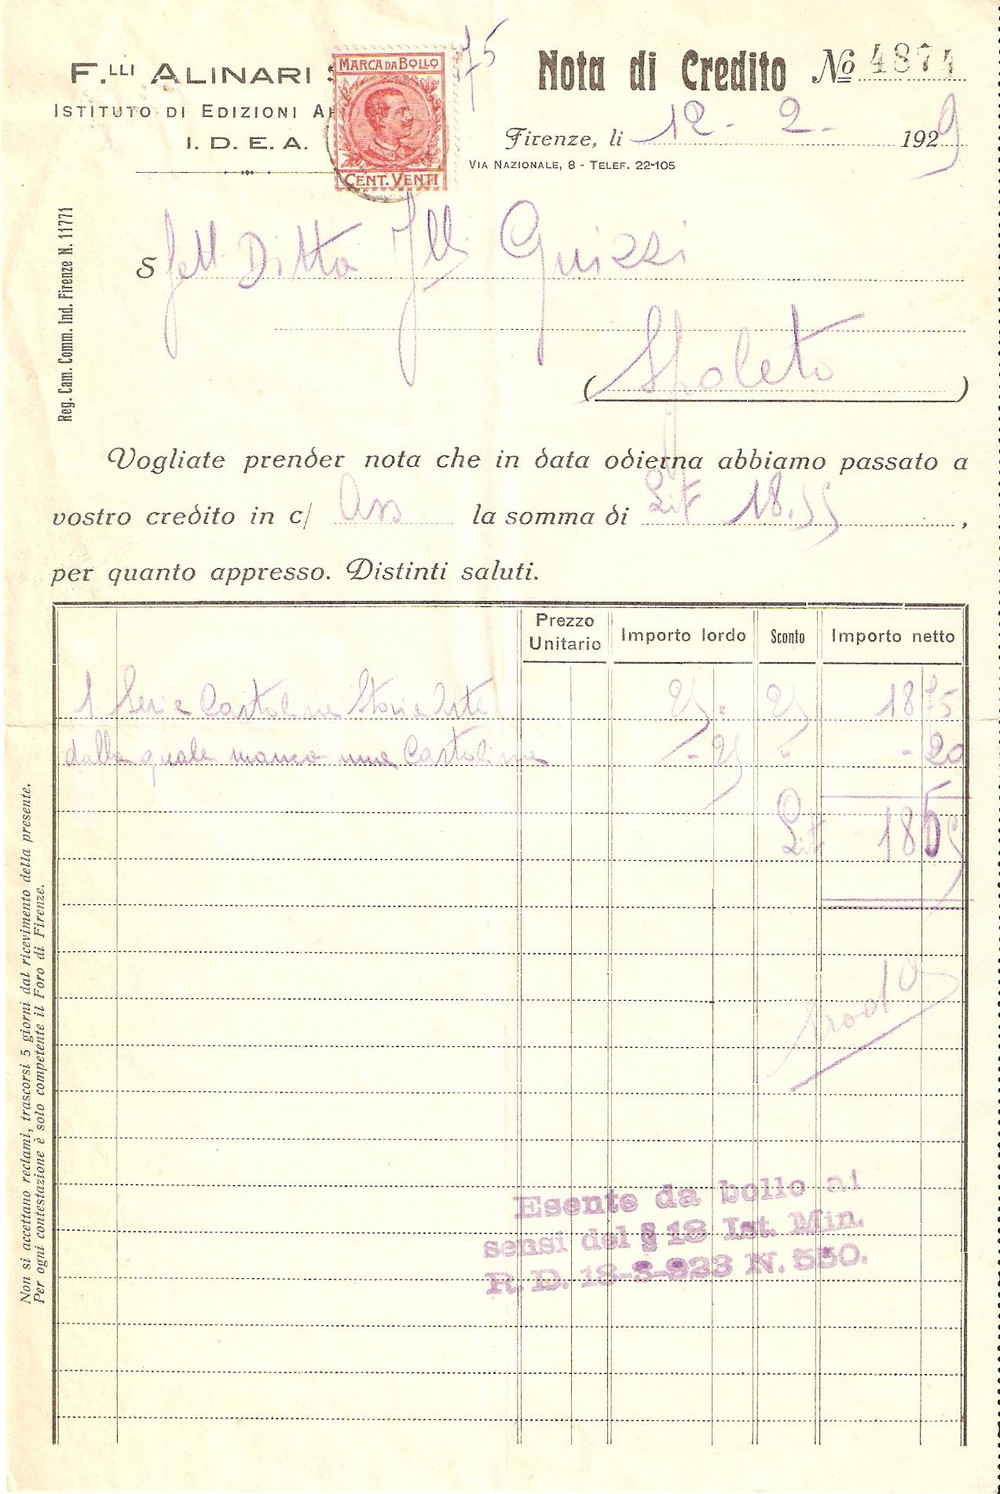 F.LLI ALINARI
ISTITUTO DI EDIZIONI
I. D. E. A.
MARCA DA BOLLO
CENT. VENTI
75
Nota di Credito No 4874
Firenze, li 12 - 2 - 1929
VIA NAZIONALE, 8 - TELEF. 22-105
Reg. Cam. Comm. Ind. Firenze N. 11771
Spett. Ditta Flli Guizzi
(Spoleto)
Vogliate prender nota che in data odierna abbiamo passato a
vostro credito in c/ Ass la somma di Lit 18.55,
per quanto appresso. Distinti saluti.
Prezzo Unitario Importo lordo Sconto Importo netto
1 Serie Cartoline Storia Arte 25 = 25 18 75
dalla quale manca una Cartolina - 25 - - 20
Lit 18 55
Esente da bollo ai
sensi del § 18 Ist. Min.
R. D. 18-3-923 N. 550.
Non si accettano reclami, trascorsi 5 giorni dal ricevimento della presente.
Per ogni contestazione è solo competente il Foro di Firenze.